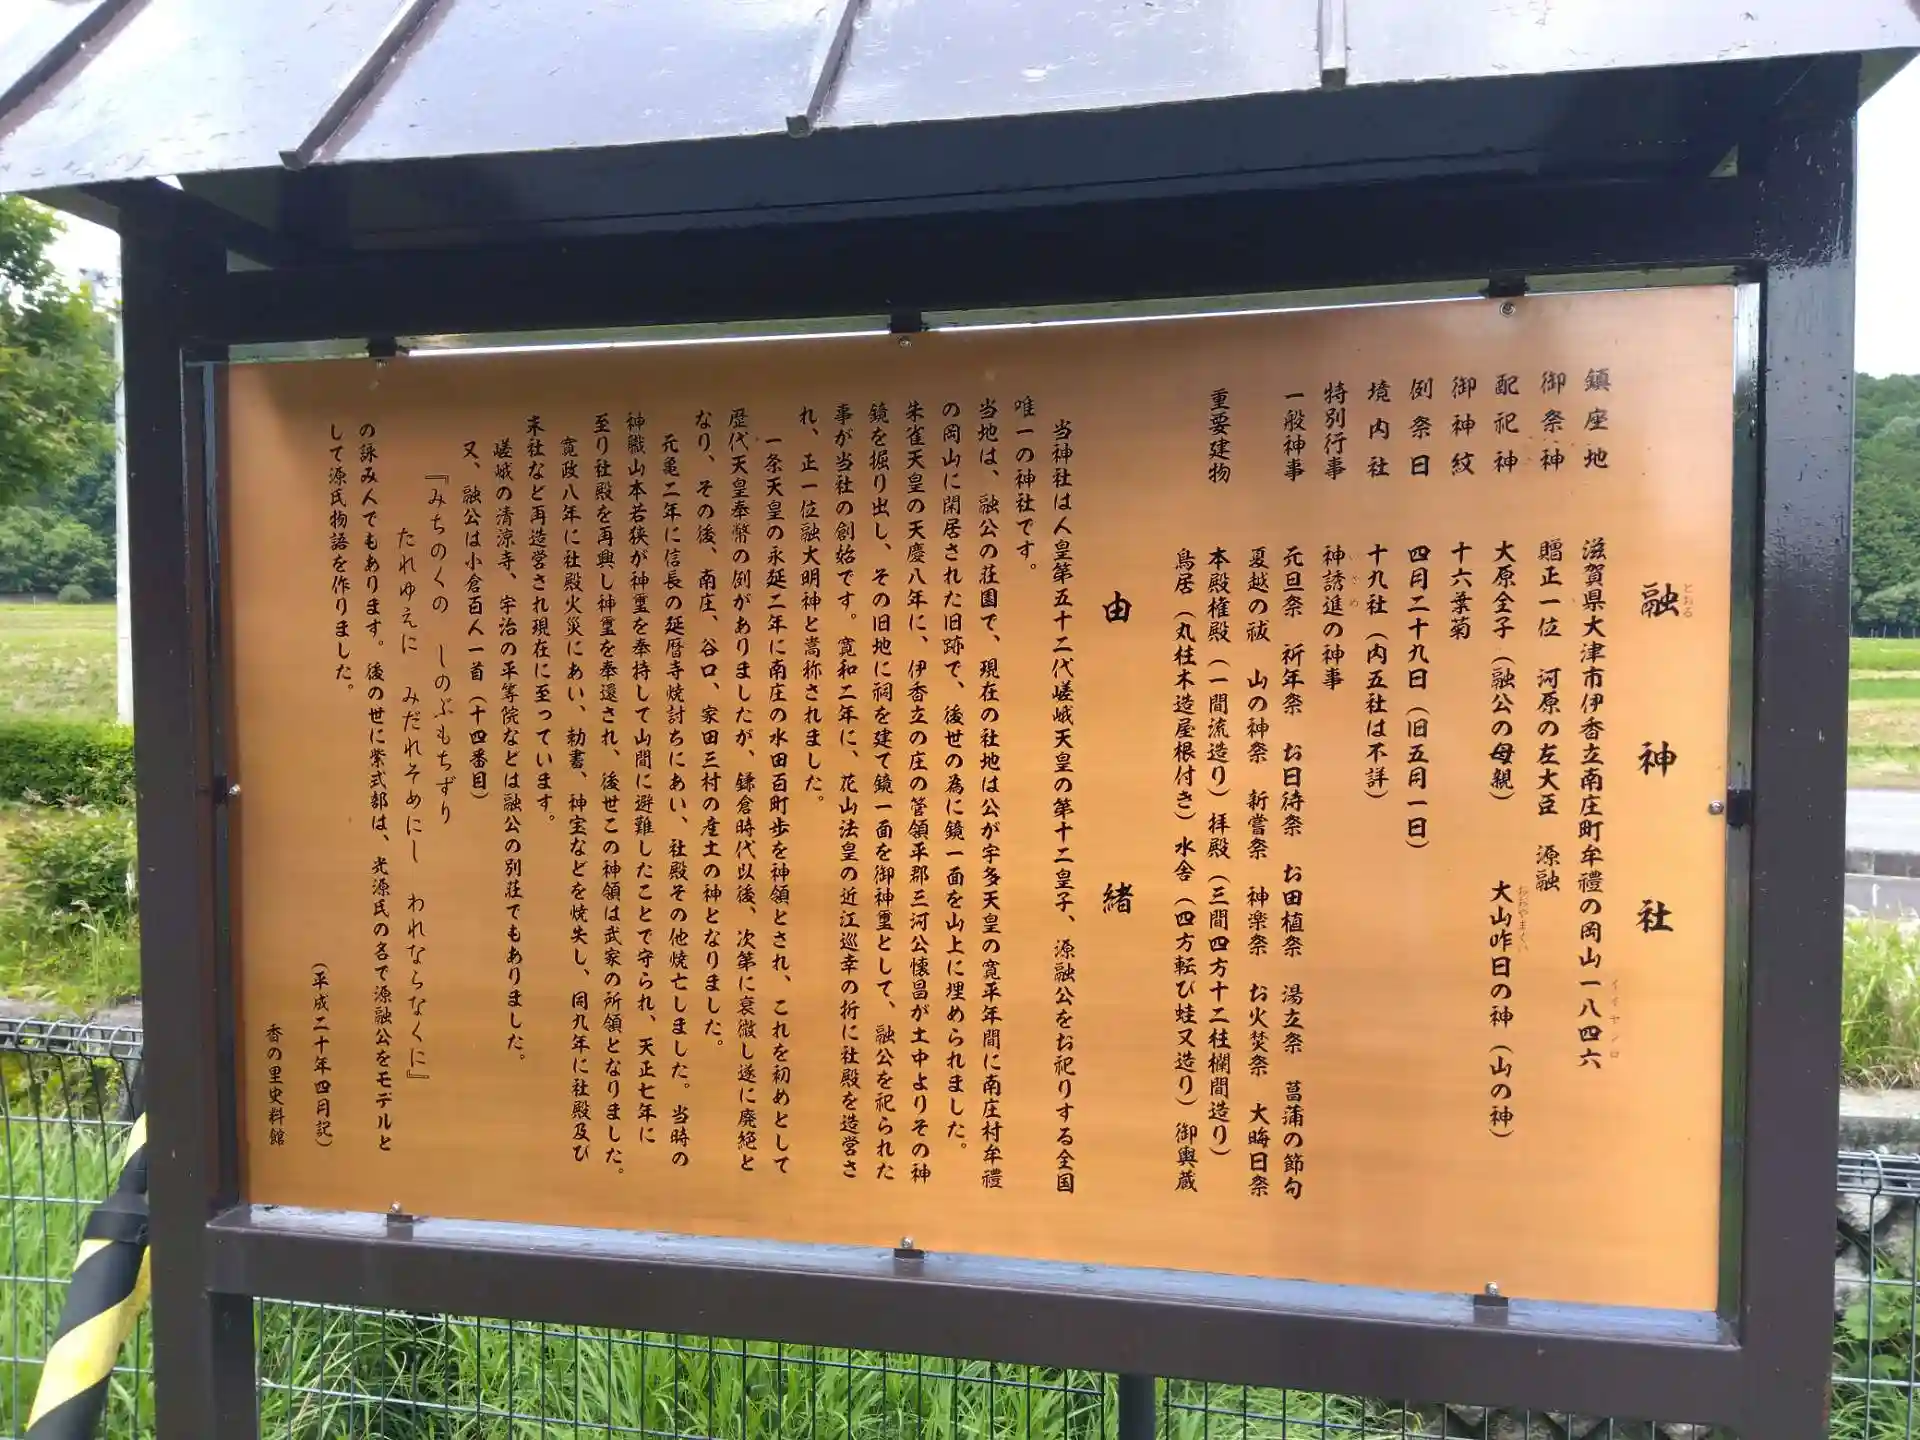 融神社
とおる
鎮座地 滋賀県大津市伊香立南庄町牟禮の岡山一八四六
イイヤシロ
御祭神 贈正一位 河原の左大臣 源融
配祀神 大原全子（融公の母親） 大山咋日の神（山の神）
おおやまくい
御神紋 十六葉菊
例祭日 四月二十九日（旧五月一日）
境内社 十九社（内五社は不詳）
特別行事 神誘進の神事
いさめ
一般神事 元旦祭 祈年祭 お日待祭 お田植祭 湯立祭 菖蒲の節句
夏越の祓 山の神祭 新嘗祭 神楽祭 お火焚祭 大晦日祭
重要建物 本殿権殿（一間流造り）拝殿（三間四方十二柱欄間造り）
鳥居（丸柱木造屋根付き）水舎（四方転び蛙又造り）御輿蔵
由緒
当神社は人皇第五十二代嵯峨天皇の第十二皇子、源融公をお祀りする全国
唯一の神社です。
当地は、融公の荘園で、現在の社地は公が宇多天皇の寛平年間に南庄村牟禮
の岡山に閑居された旧跡で、後世の為に鏡一面を山上に埋められました。
朱雀天皇の天慶八年に、伊香立の庄の管領平郡三河公懐昌が土中よりその神
鏡を掘り出し、その旧地に祠を建て鏡一面を御神璽として、融公を祀られた
事が当社の創始です。寛和二年に、花山法皇の近江巡幸の折に社殿を造営さ
れ、正一位融大明神と嵩称されました。
一条天皇の永延二年に南庄の水田百町歩を神領とされ、これを初めとして
歴代天皇奉幣の例がありましたが、鎌倉時代以後、次第に衰微し遂に廃絶と
なり、その後、南庄、谷口、家田三村の産土の神となりました。
元亀二年に信長の延暦寺焼討ちにあい、社殿その他焼亡しました。当時の
神職山本若狭が神璽を奉持して山間に避難したことで守られ、天正七年に
至り社殿を再興し神璽を奉還され、後世この神領は武家の所領となりました。
寛政八年に社殿火災にあい、勅書、神宝などを焼失し、同九年に社殿及び
末社など再造営され現在に至っています。
嵯峨の清涼寺、宇治の平等院などは融公の別荘でもありました。
又、融公は小倉百人一首（十四番目）
『みちのくの しのぶもちずり
たれゆえに みだれそめにし われならなくに』
の詠み人でもあります。後の世に紫式部は、光源氏の名で源融公をモデルと
して源氏物語を作りました。
（平成二十年四月記）
香の里史料館